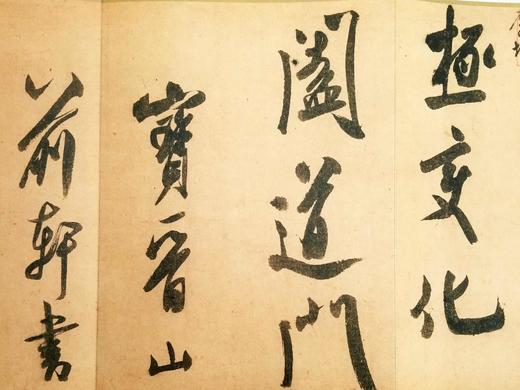 極變化
闔道門
寶晉山
前軒書